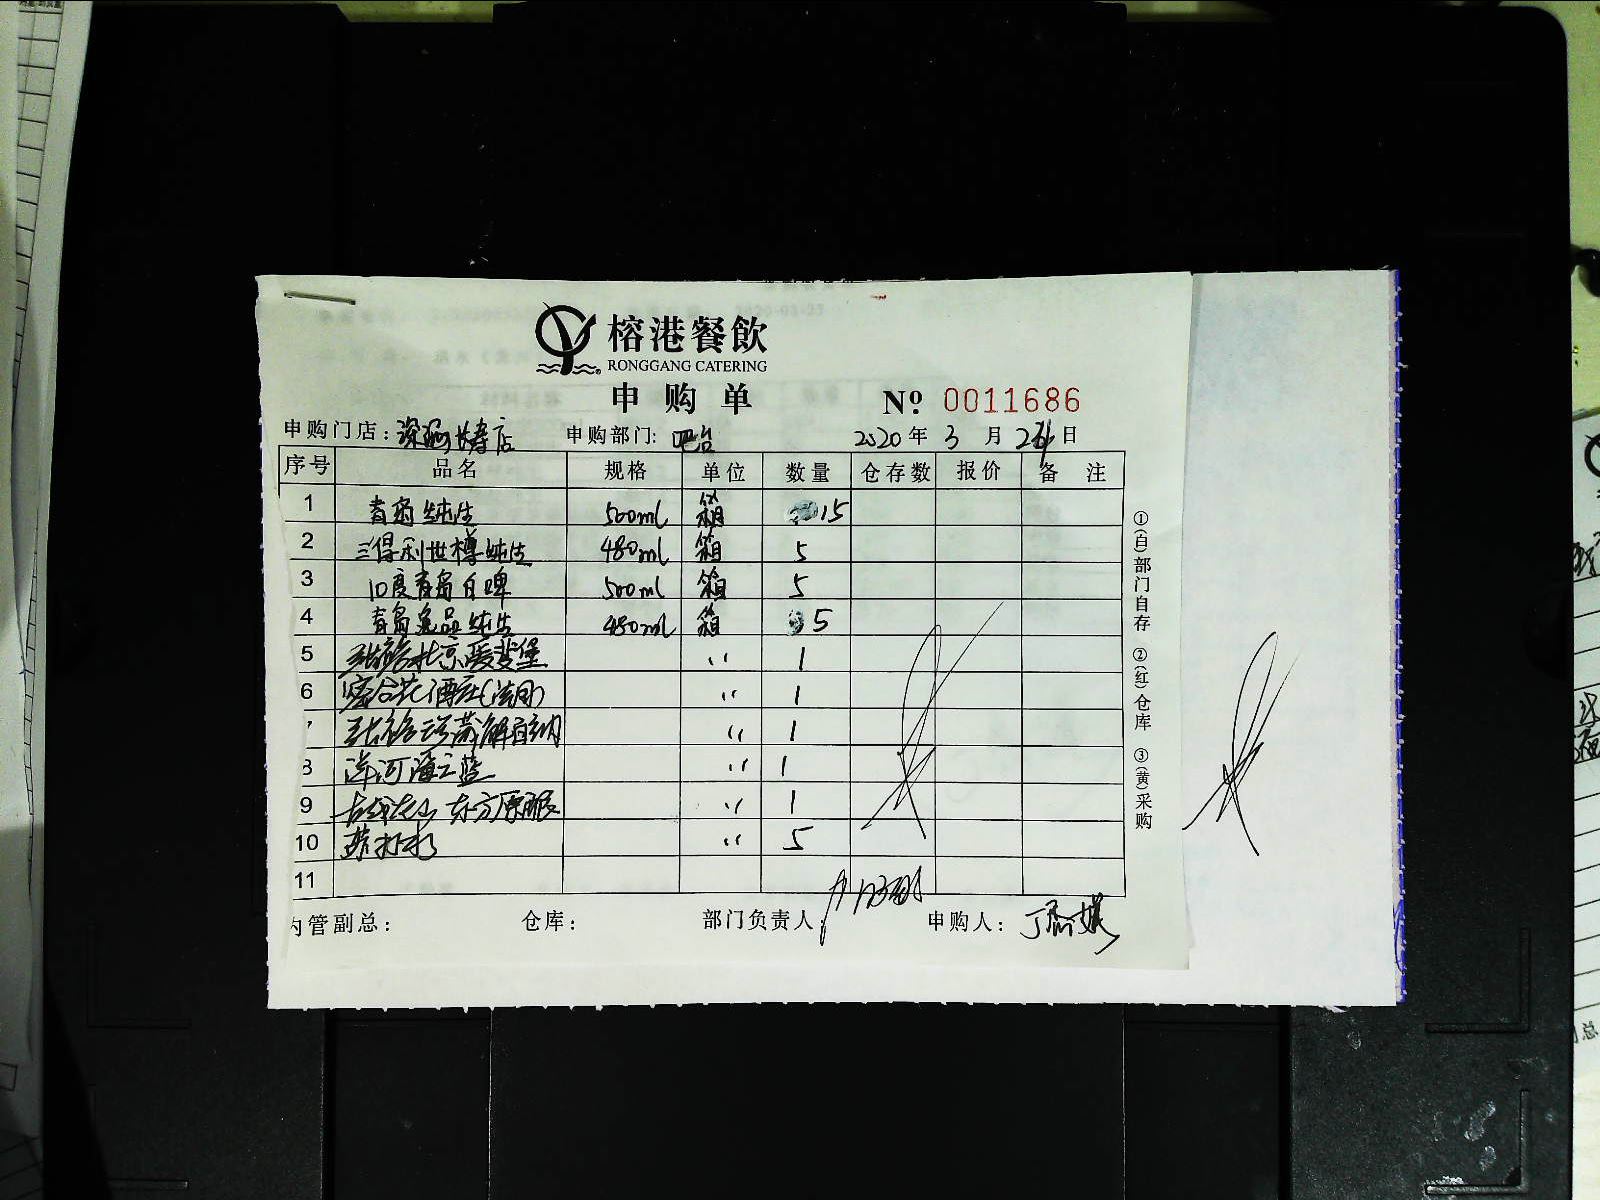 榕港餐飲
RONGGANG CATERING
申购单
Nº 0011686
申购门店: 长寿店 申购部门: 吧台 2020年3月 日
序号 品名 规格 单位 数量 仓存数 报价 备注
1 青岛纯生 500ml 箱 15
2 三得利世樽纯生 480ml 箱 5
3 10度青岛白啤 500ml 箱 5
4 青岛逸品纯生 480ml 箱 5
5 张裕北京爱斐堡 〃 1
6 蜜合花酒庄(法国) 〃 1
7 张裕 解百纳 〃 1
8 洋河海之蓝 〃 1
9 古越龙山 东方原酿 〃 1
10 苏打水 〃 5
11
内管副总: 仓库: 部门负责人: 申购人:
①(白)部门自存 ②(红)仓库 ③(黄)采购